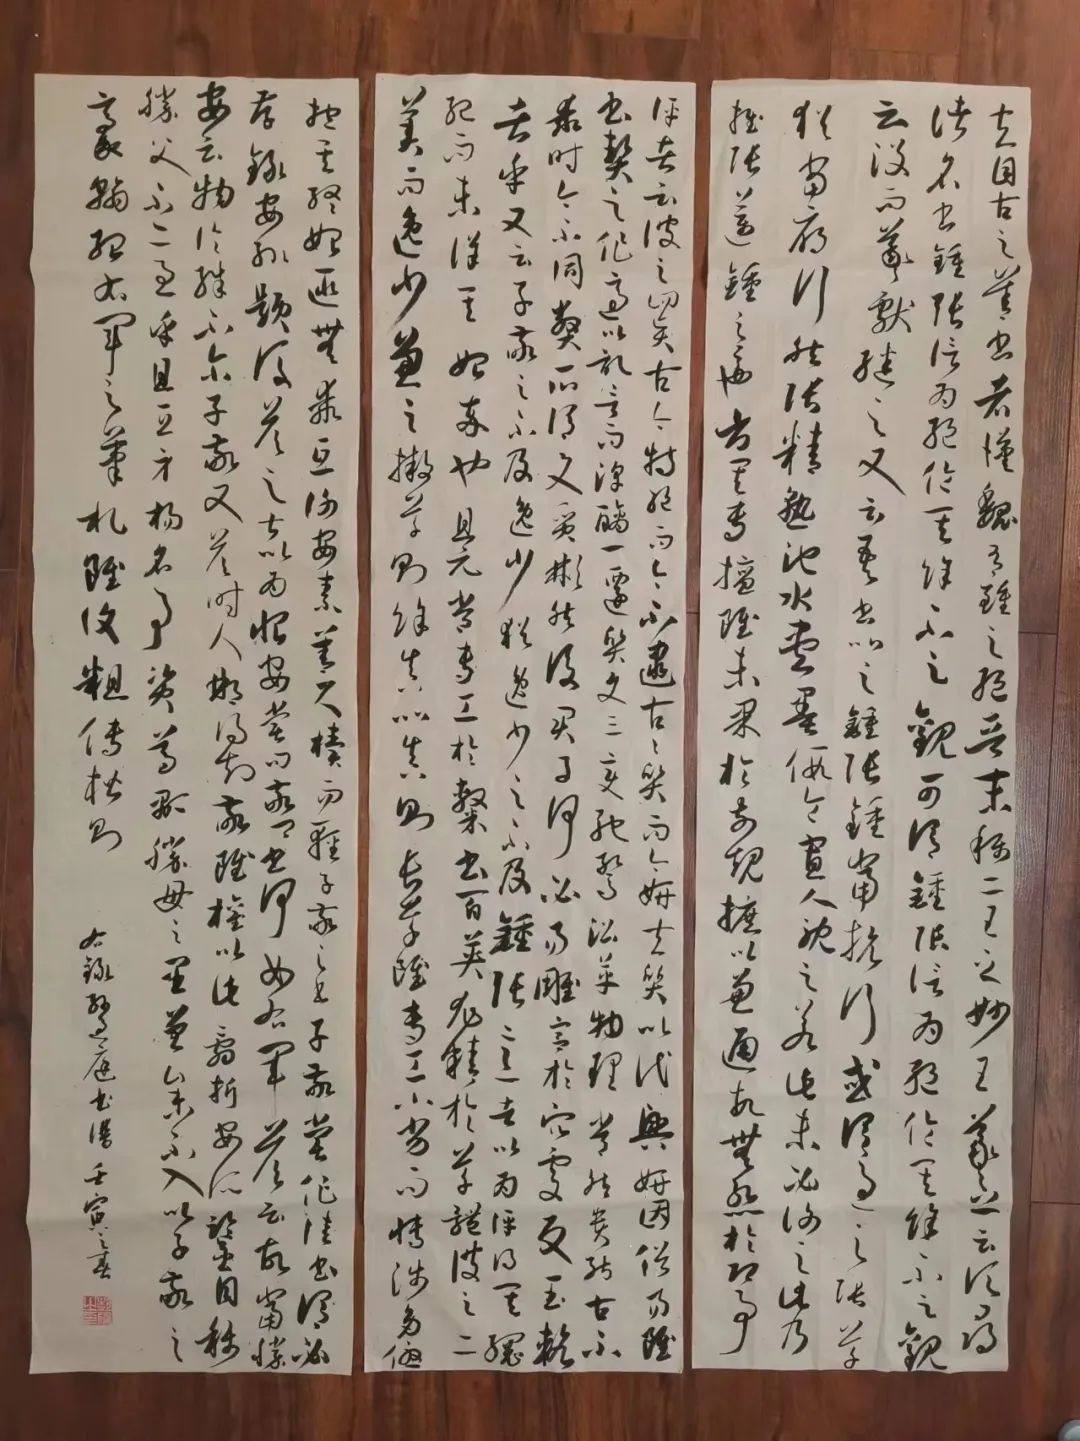 夫自古之善書者漢魏有鍾張之絕晉末稱二王之妙王羲之云頃尋
諸名書鍾張信為絕倫其餘不足觀可謂鍾張信為絕倫其餘不足觀
云沒而羲獻繼之又云吾書比之鍾張鍾當抗行或謂過之張草
猶當雁行然張精熟池水盡墨假令寡人耽之若此未必謝之此乃
推張邁鍾之意也考其專擅雖未果於前規摭以兼通故無慚於即事
評者云彼之四賢古今特絕而今不逮古古質而今妍夫質以代興妍因俗易雖
書契之作適以記言而淳醨一遷質文三變馳騖沿革物理常然貴能古不
乖時今不同弊所謂文質彬然後君子何必易雕宮於穴處反玉輅
者乎又云子敬之不及逸少猶逸少之不及鍾張意者以為評得其綱
紀而未詳其始卒也且元常專工於隸書百英尤精於草體彼之二
美而逸少兼之擬草則餘真比真則長草雖專工小劣而博涉多優
摠其終始匪無乖互謝安素善尺牘而輕子敬之書子敬嘗作佳書謂必
存錄安輒題後答之甚以為恨安嘗問敬卿書何如右軍答云故當勝
安云物論殊不爾子敬又答時人那得知敬雖權以此辭折安所鑒自稱
勝父不亦過乎且立身揚名事資尊顯勝母之里曾參不入以子敬之
豪翰紹右軍之筆札雖復粗傳楷則
右錄孫過庭書譜壬寅之春